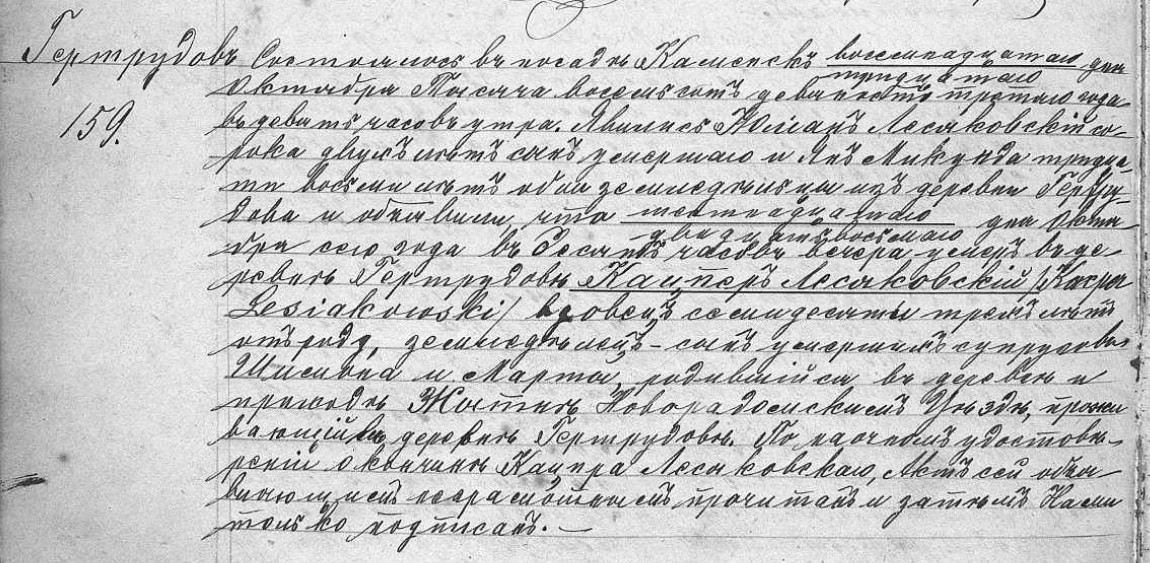 Гертрудовъ Состоялось въ посадѣ Каменскъ восемнадцатаго дня
тридцатаго
159. Октября Тысяча восемь сотъ девяносто третьяго года
въ девять часовъ утра. Явились Юліанъ Лесяковскій со-
рока двухъ лѣтъ сынъ умершаго и Янъ Микунда тридца-
ти восьми лѣтъ оба земледѣльцы изъ деревни Гертру-
дова и объявили, что шестнадцатаго дня Октя-
двадцать восьмаго
бря сего года въ десять часовъ вечера умеръ въ де-
ревнѣ Гертрудовѣ Кацперъ Лесяковскій /Kacper
Lesiakowski/ вдовецъ семидесяти трехъ лѣтъ
отъ роду, земледѣлецъ - сынъ умершихъ супруговъ
и Марты, родившійся въ деревнѣ и
приходѣ Жытнѣ Новорадомскимъ Уѣздѣ, прожи
вающій въ деревнѣ Гертрудовѣ. По наочномъ удостовѣ-
реніи о кончинѣ Кацпра Лесяковскаго, Актъ сей объя
вляющимъ неграмотнымъ прочитанъ и затѣмъ Нами
только подписанъ. —